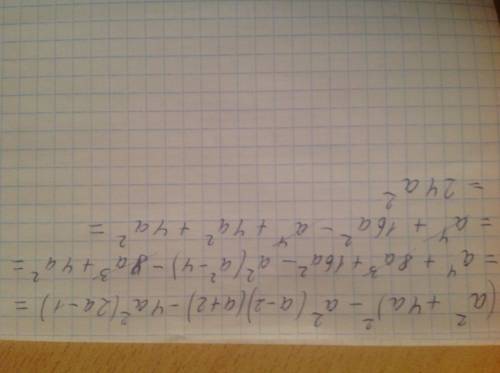 (a² + 4a)² - a²(a-2)(a+2) - 4a²(2a-1) =
= a⁴ + 8a³ + 16a² - a²(a²-4) - 8a³ + 4a² =
= a⁴ + 16a² - a⁴ + 4a² + 4a² =
= 24a²